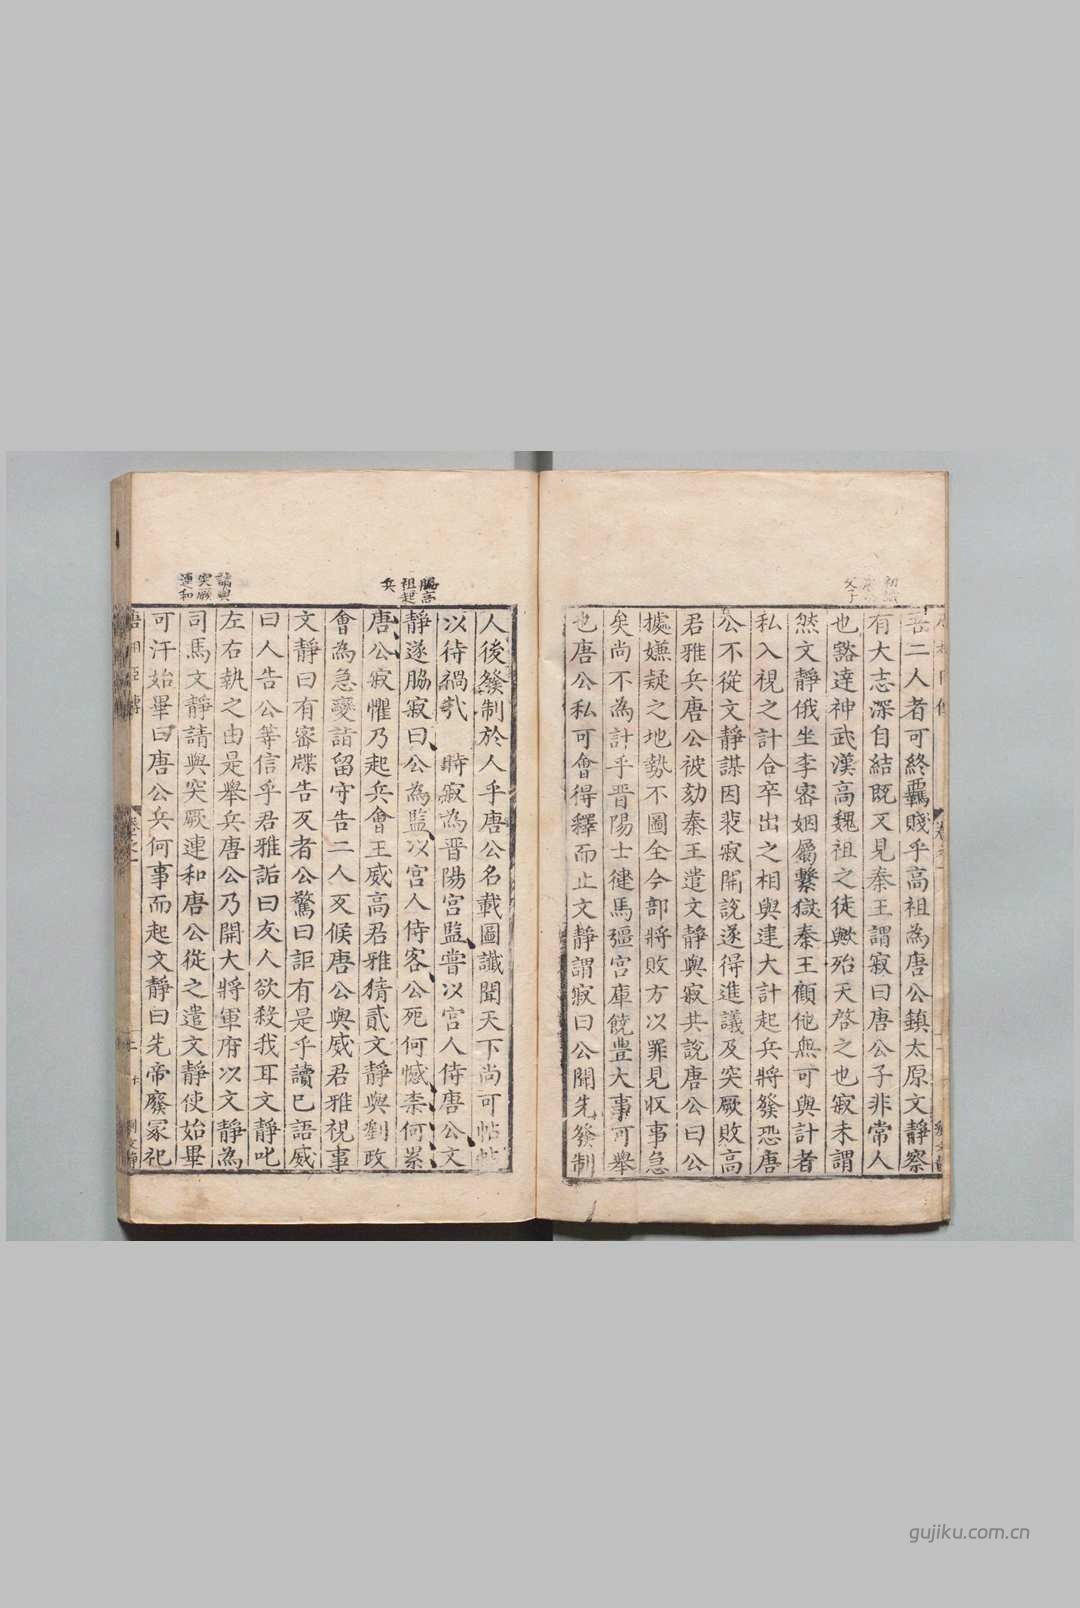 吾二人者可終羈賤乎高祖為唐公鎮太原文靜察
有大志深自結既又見秦王謂寂曰唐公子非常人
也豁達神武漢高魏祖之徒歟殆天啓之也寂未謂
然文靜俄坐李密姻屬繫獄秦王顧他無可與計者
私入視之計合卒出之相與建大計起兵將發恐唐
公不從文靜謀因裴寂開說遂得進議及突厥敗高
君雅兵唐公被劾秦王遣文靜與寂共說唐公曰公
據嫌疑之地勢不圖全今部將敗方以罪見収事急
矣尚不為計乎晋陽士徤馬彊宮庫饒豊大事可舉
也唐公私可會得釋而止文靜謂寂曰公開先發制
脇高
祖起
兵
人後發制於人乎唐公名載圖讖聞天下尚可帖帖
以待禍㢤 時寂為晋陽宮監甞以宮人侍唐公文
靜遂脇寂曰公為監以宮人侍客公死何憾柰何累
唐公寂懼乃起兵會王威高君雅猜貳文靜與劉政
會為急變詣留守告二人反候唐公與威君雅視事
文靜曰有密牒告反者公驚曰詎有是乎讀已語威
曰人告公等信乎君雅詬曰友人欲殺我耳文靜叱
左右執之由是舉兵唐公乃開大將軍府以文靜為
請與
突厥
連和
司馬文靜請與突厥連和唐公從之遣文靜使始畢
可汗始畢曰唐公兵何事而起文靜曰先帝廢冢祀
gujiku.com.cn